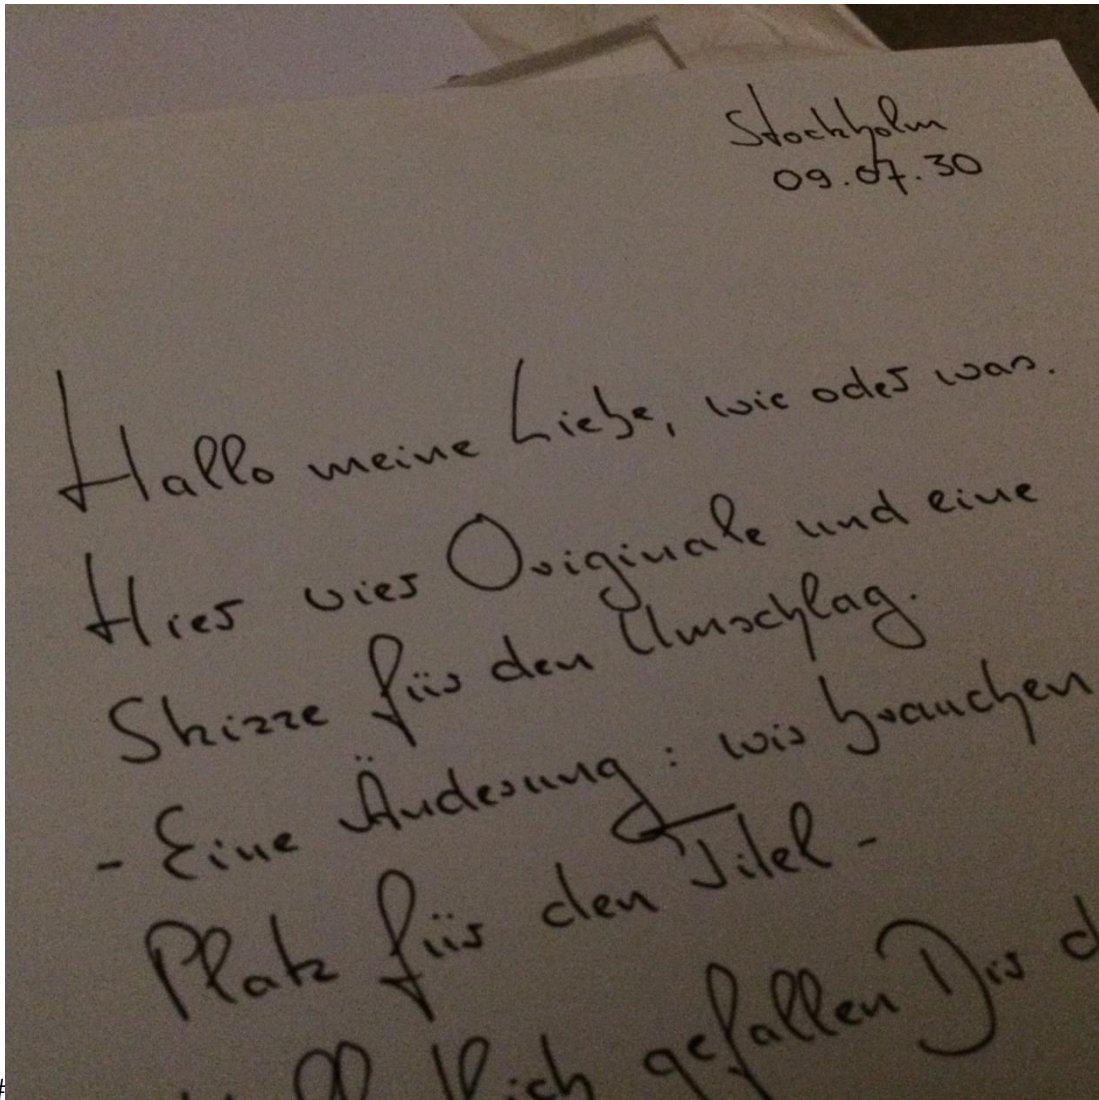 Stockholm
09.07.30
Hallo meine Liebe, wie oder was.
Hier vier Originale und eine
Skizze für den Umschlag.
- Eine Änderung: wir brauchen
Platz für den Titel -
gefallen Dir